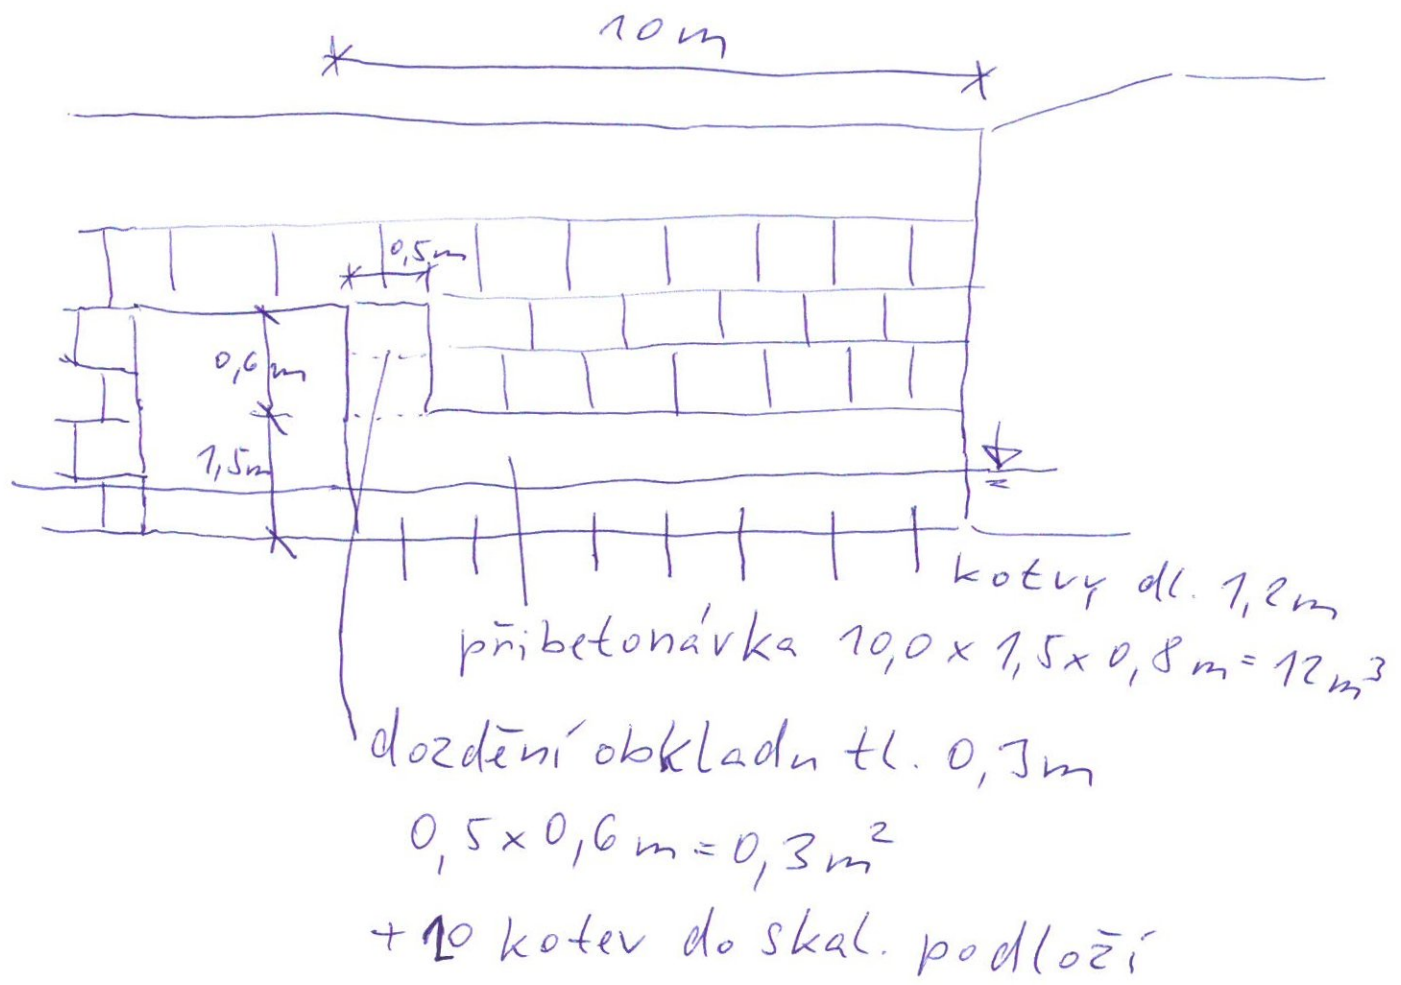 10 m
0,5m
0,6m
1,5m
kotvy dl. 1,2m
přibetonávka 10,0 x 1,5 x 0,8 m = 12 m³
dozdění obkladu tl. 0,3m
0,5 x 0,6 m = 0,3 m²
+ 10 kotev do skal. podloží